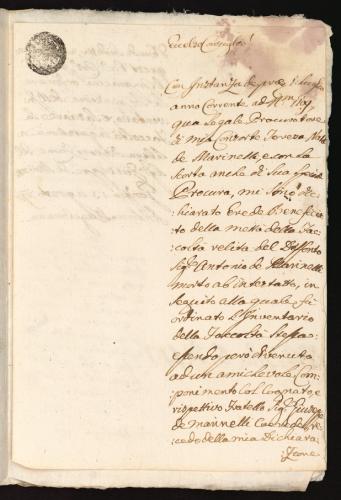 Eccelso Consiglio!
Con Instanza de pres: i: Luglio
anno Corrente ad N:m
qua Legale Procuratore
di mia Consorte Teresa Nata
de Marinelli, e con la
scorta anche di sua
Procura, mi sono di:
chiarato Erede Beneficia:
to della metà della Fa:
coltà relita del Deffonto
Sig: Antonio de Marinelli
morto ab intestato, in
seguito alla quale fù
ordinato l'Inventario
della Faccoltà stessa
essendo però divenuto
ad un amichevole Com:
ponimento col Cognato, e
rispettivo Fratello Sig: Giusep:
de Marinelli
cedo della mia Dichiara:
:zione